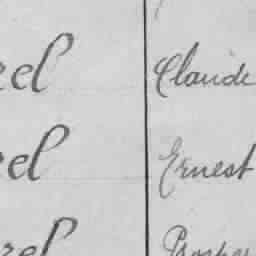 rel Claude
rel Ernest
rel Prosper